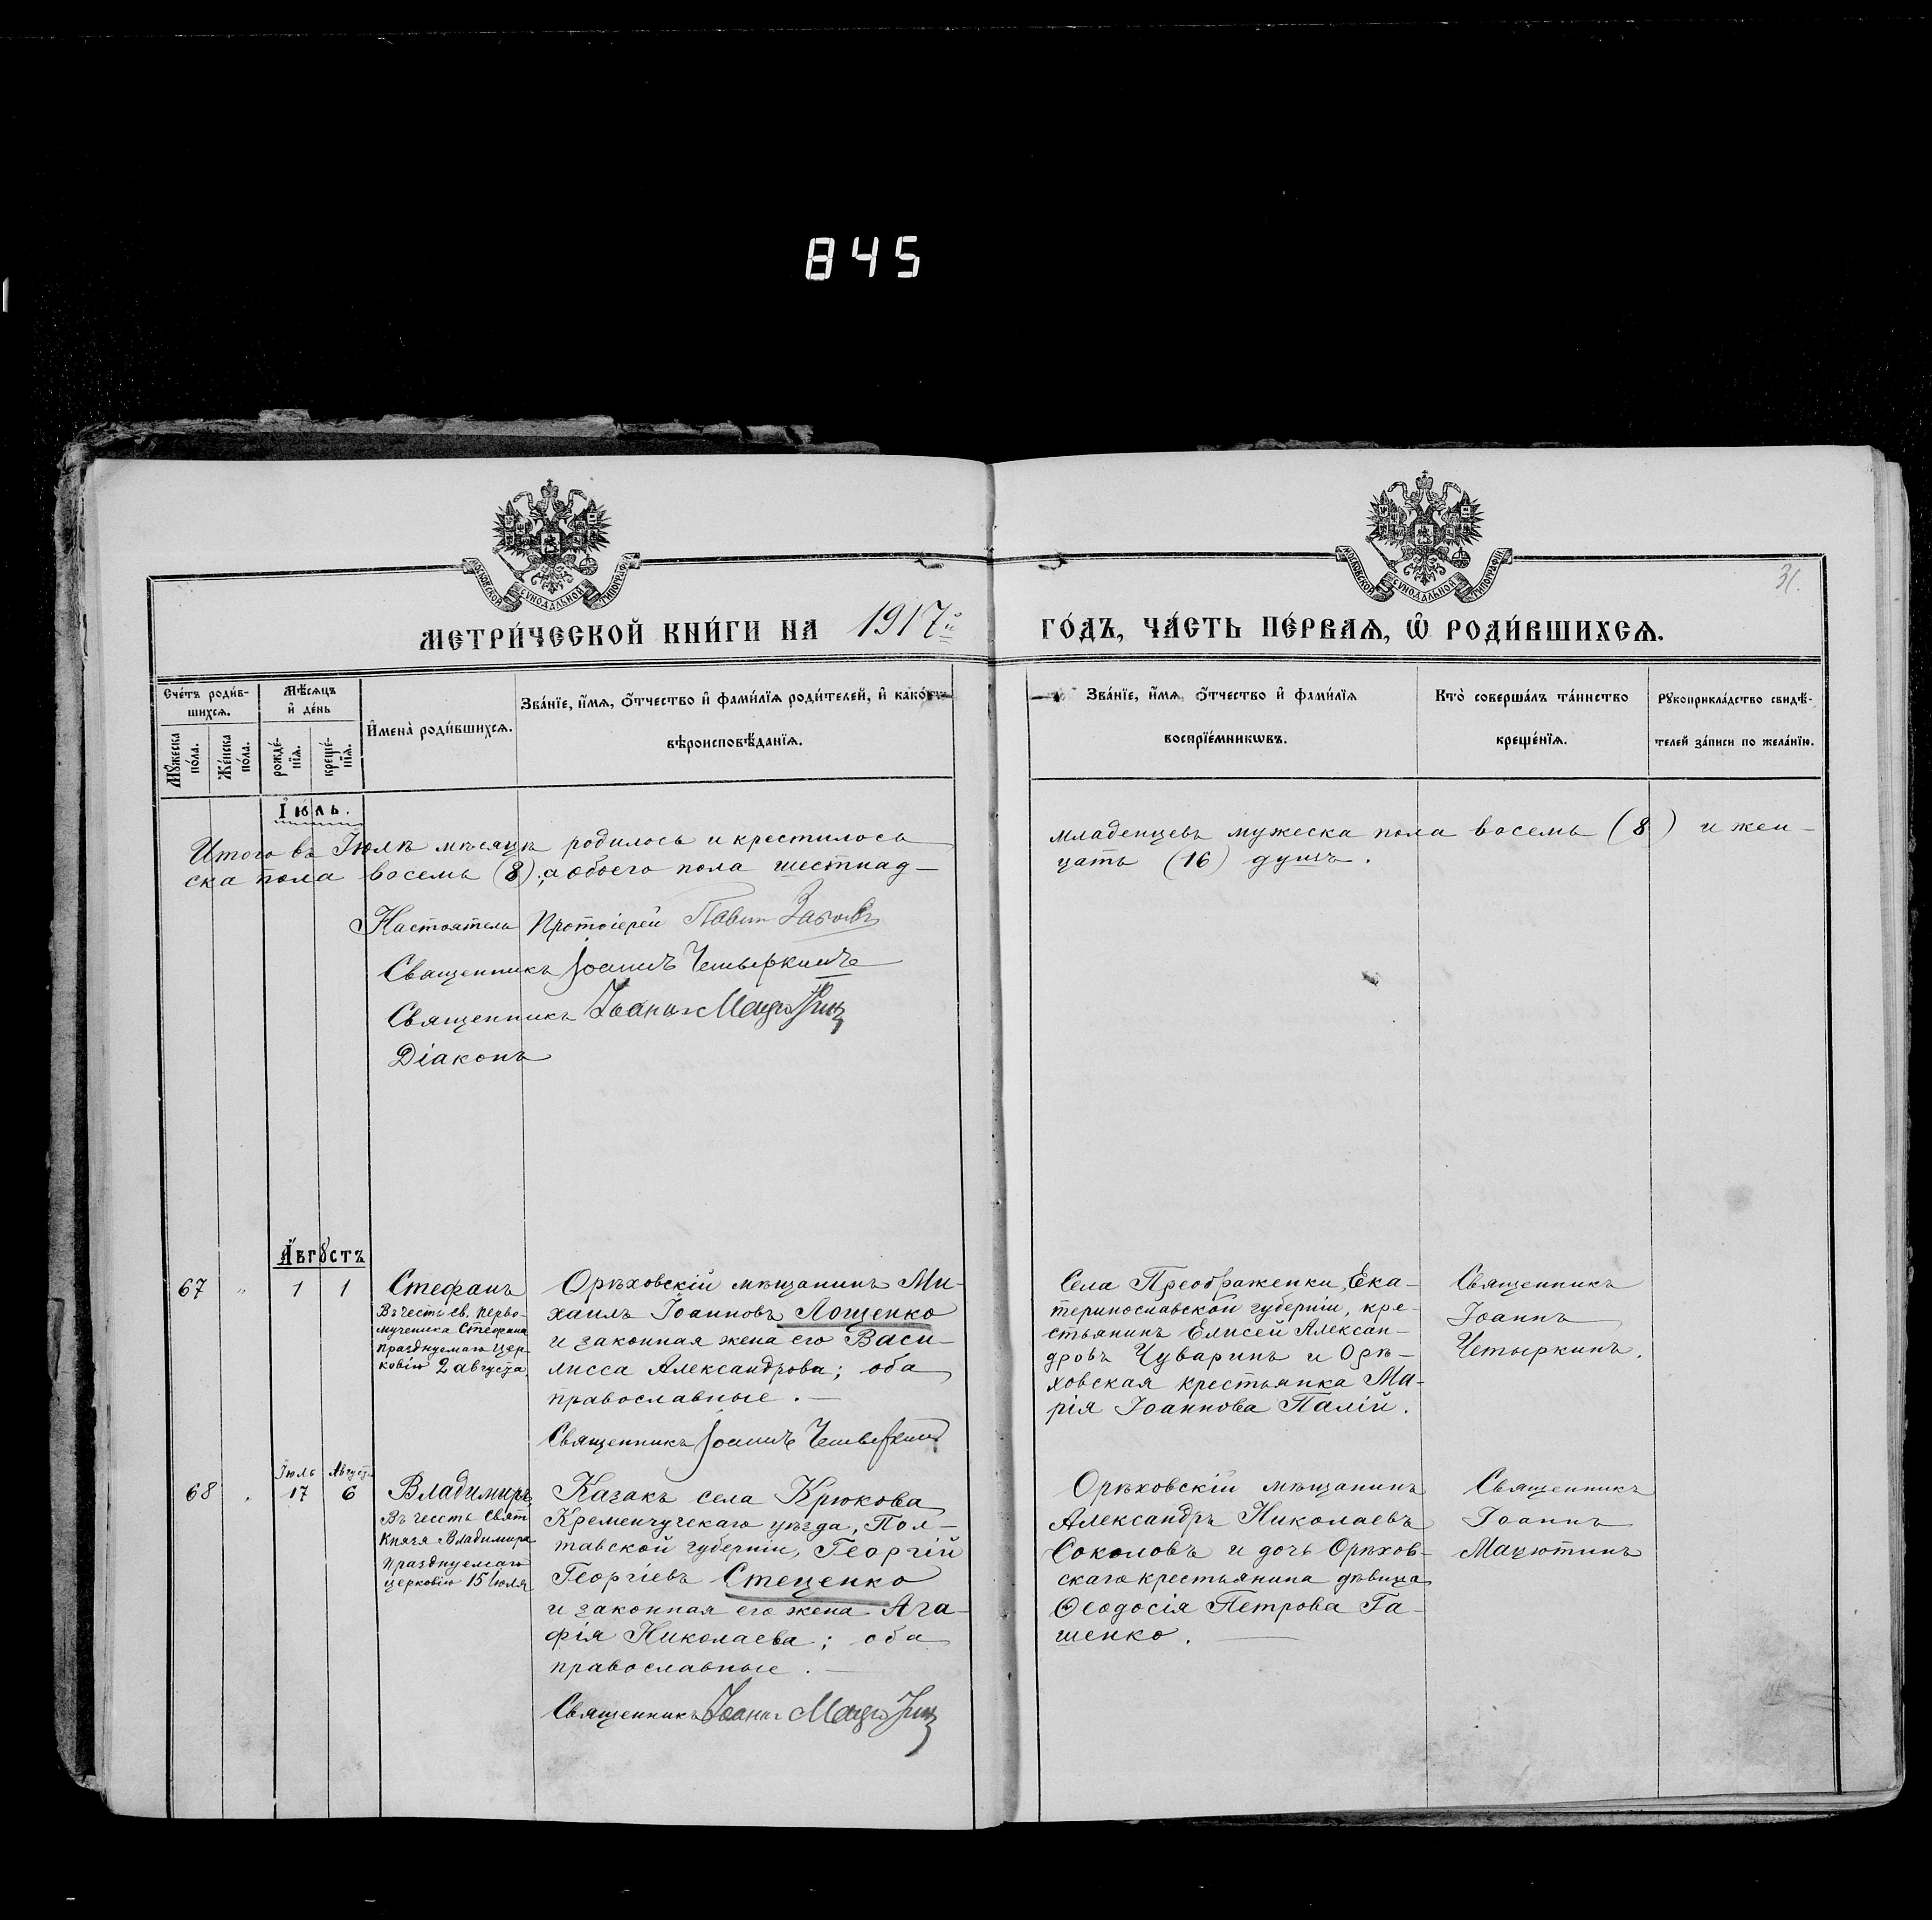 845
МОСКОВСКОЙ СѴНОДАЛЬНОЙ ТИПОГРАФІИ
МОСКОВСКОЙ СѴНОДАЛЬНОЙ ТИПОГРАФІИ
31.
МЕТРИ́ЧЕСКОЙ КНИ́ГИ НА 1917й ГО́ДЪ, ЧА́СТЬ ПЕ́РВАѦ, Ѡ҆ РОДИ́ВШИХСѦ.
Сче́тъ роди́в-
шихсѧ.
Мꙋ́жеска по́ла.
Же́нска по́ла.
Мѣ́сѧцъ
и҆ де́нь
рожде́-
нїѧ.
креще́-
нїѧ.
И҆мена̀ роди́вшихсѧ.
Зва́нїе, и҆́мѧ, ѻ҆́тчество и҆ фами́лїѧ роди́телей, и҆ како́гѡ
вѣроисповѣ́данїѧ.
Зва́нїе, и҆́мѧ, ѻ҆́тчество и҆ фами́лїѧ
воспрїе́мникѡвъ.
Кто̀ соверша́лъ та́инство
креще́нїѧ.
Рꙋкоприкла́дство свидѣ́-
телей за́писи по жела́нїю.
І҆ю́ль.
Итого въ Іюлѣ мѣсяцѣ родилось и крестилось младенцевъ мужеска пола восемь (8) и жен-
ска пола восемь (8); а обоего пола шестнад-
цать (16) душъ.
Настоятель Протоіерей Павелъ
Священникъ Іоаннъ Четыркинъ
Священникъ Іоаннъ Мацютинъ
Діаконъ
А҆́вгꙋстъ
67 " 1 1
Стефанъ
Въ честь св. перво-
мученика Стефана
празднуемаго цер-
ковію 2 августа.
Орѣховскій мѣщанинъ Ми-
хаилъ Іоанновъ Лощенко
и законная жена его Васи-
лисса Александрова; оба
православные. —
Священникъ Іоаннъ Четыркинъ
Села Преображенки, Ека-
теринославской губерніи, кре-
стьянинъ Елисей Алексан-
дровъ Чуваринъ и Орѣ-
ховская крестьянка Ма-
рія Іоаннова Палій.
Священникъ
Іоаннъ
Четыркинъ.
Іюль Август.
68 . 17 6
Владимиръ
Въ честь Свят
Князя Владимира
празднуемаго
церковію 15 Іюля
Казакъ села Крюкова
Кременчугскаго уѣзда, Пол-
тавской губерніи, Георгій
Георгіевъ Стеценко
и законная его жена Ага-
фія Николаева; оба
православные. —
Священникъ Іоаннъ Мацютинъ
Орѣховскій мѣщанинъ
Александръ Николаевъ
Соколовъ и дочь Орѣхов-
скаго крестьянина дѣвица
Ѳеодосія Петрова Га-
шенко. —
Священникъ
Іоаннъ
Мацютинъ